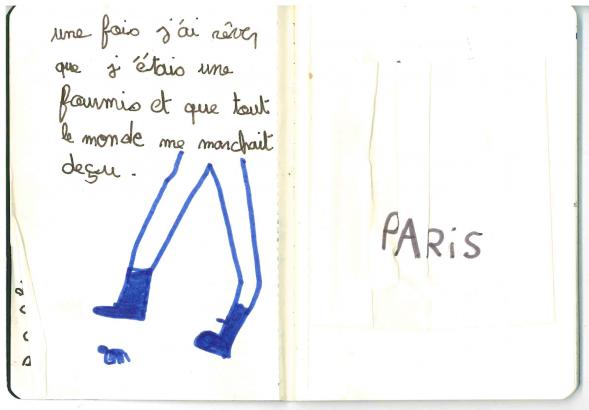 une fois j'ai rêver
que j'étais une
fourmis et que tout
le monde me marchait
deçu.
PARIS